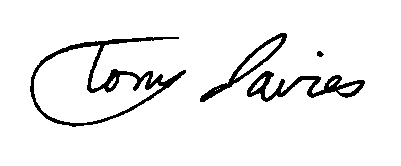 Tony Davies